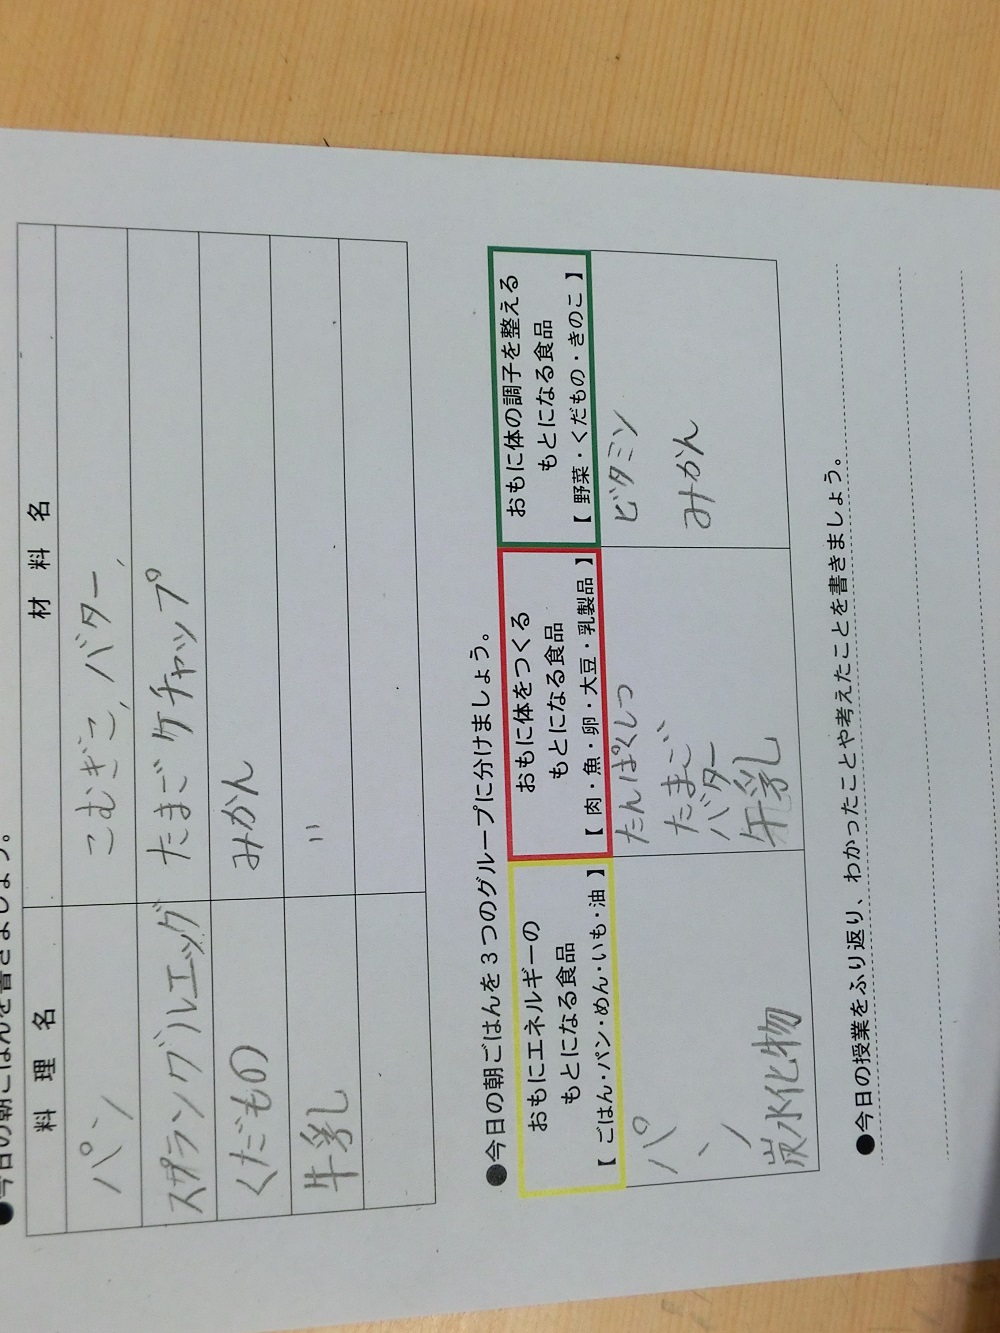 ●今日の朝ごはんを書きましょう。
料 理 名 材 料 名
パン こむぎこ, バター,
スプラングルエッグ たまごケチャップ
くだもの みかん
牛乳 〃
●今日の朝ごはんを3つのグループに分けましょう。
おもにエネルギーの
もとになる食品
【 ごはん・パン・めん・いも・油 】
おもに体をつくる
もとになる食品
【 肉・魚・卵・大豆・乳製品 】
おもに体の調子を整える
もとになる食品
【 野菜・くだもの・きのこ 】
パン
炭水化物
たんぱくしつ
たまご
バター
牛乳
ビタミン
みかん
●今日の授業をふり返り、わかったことや考えたことを書きましょう。